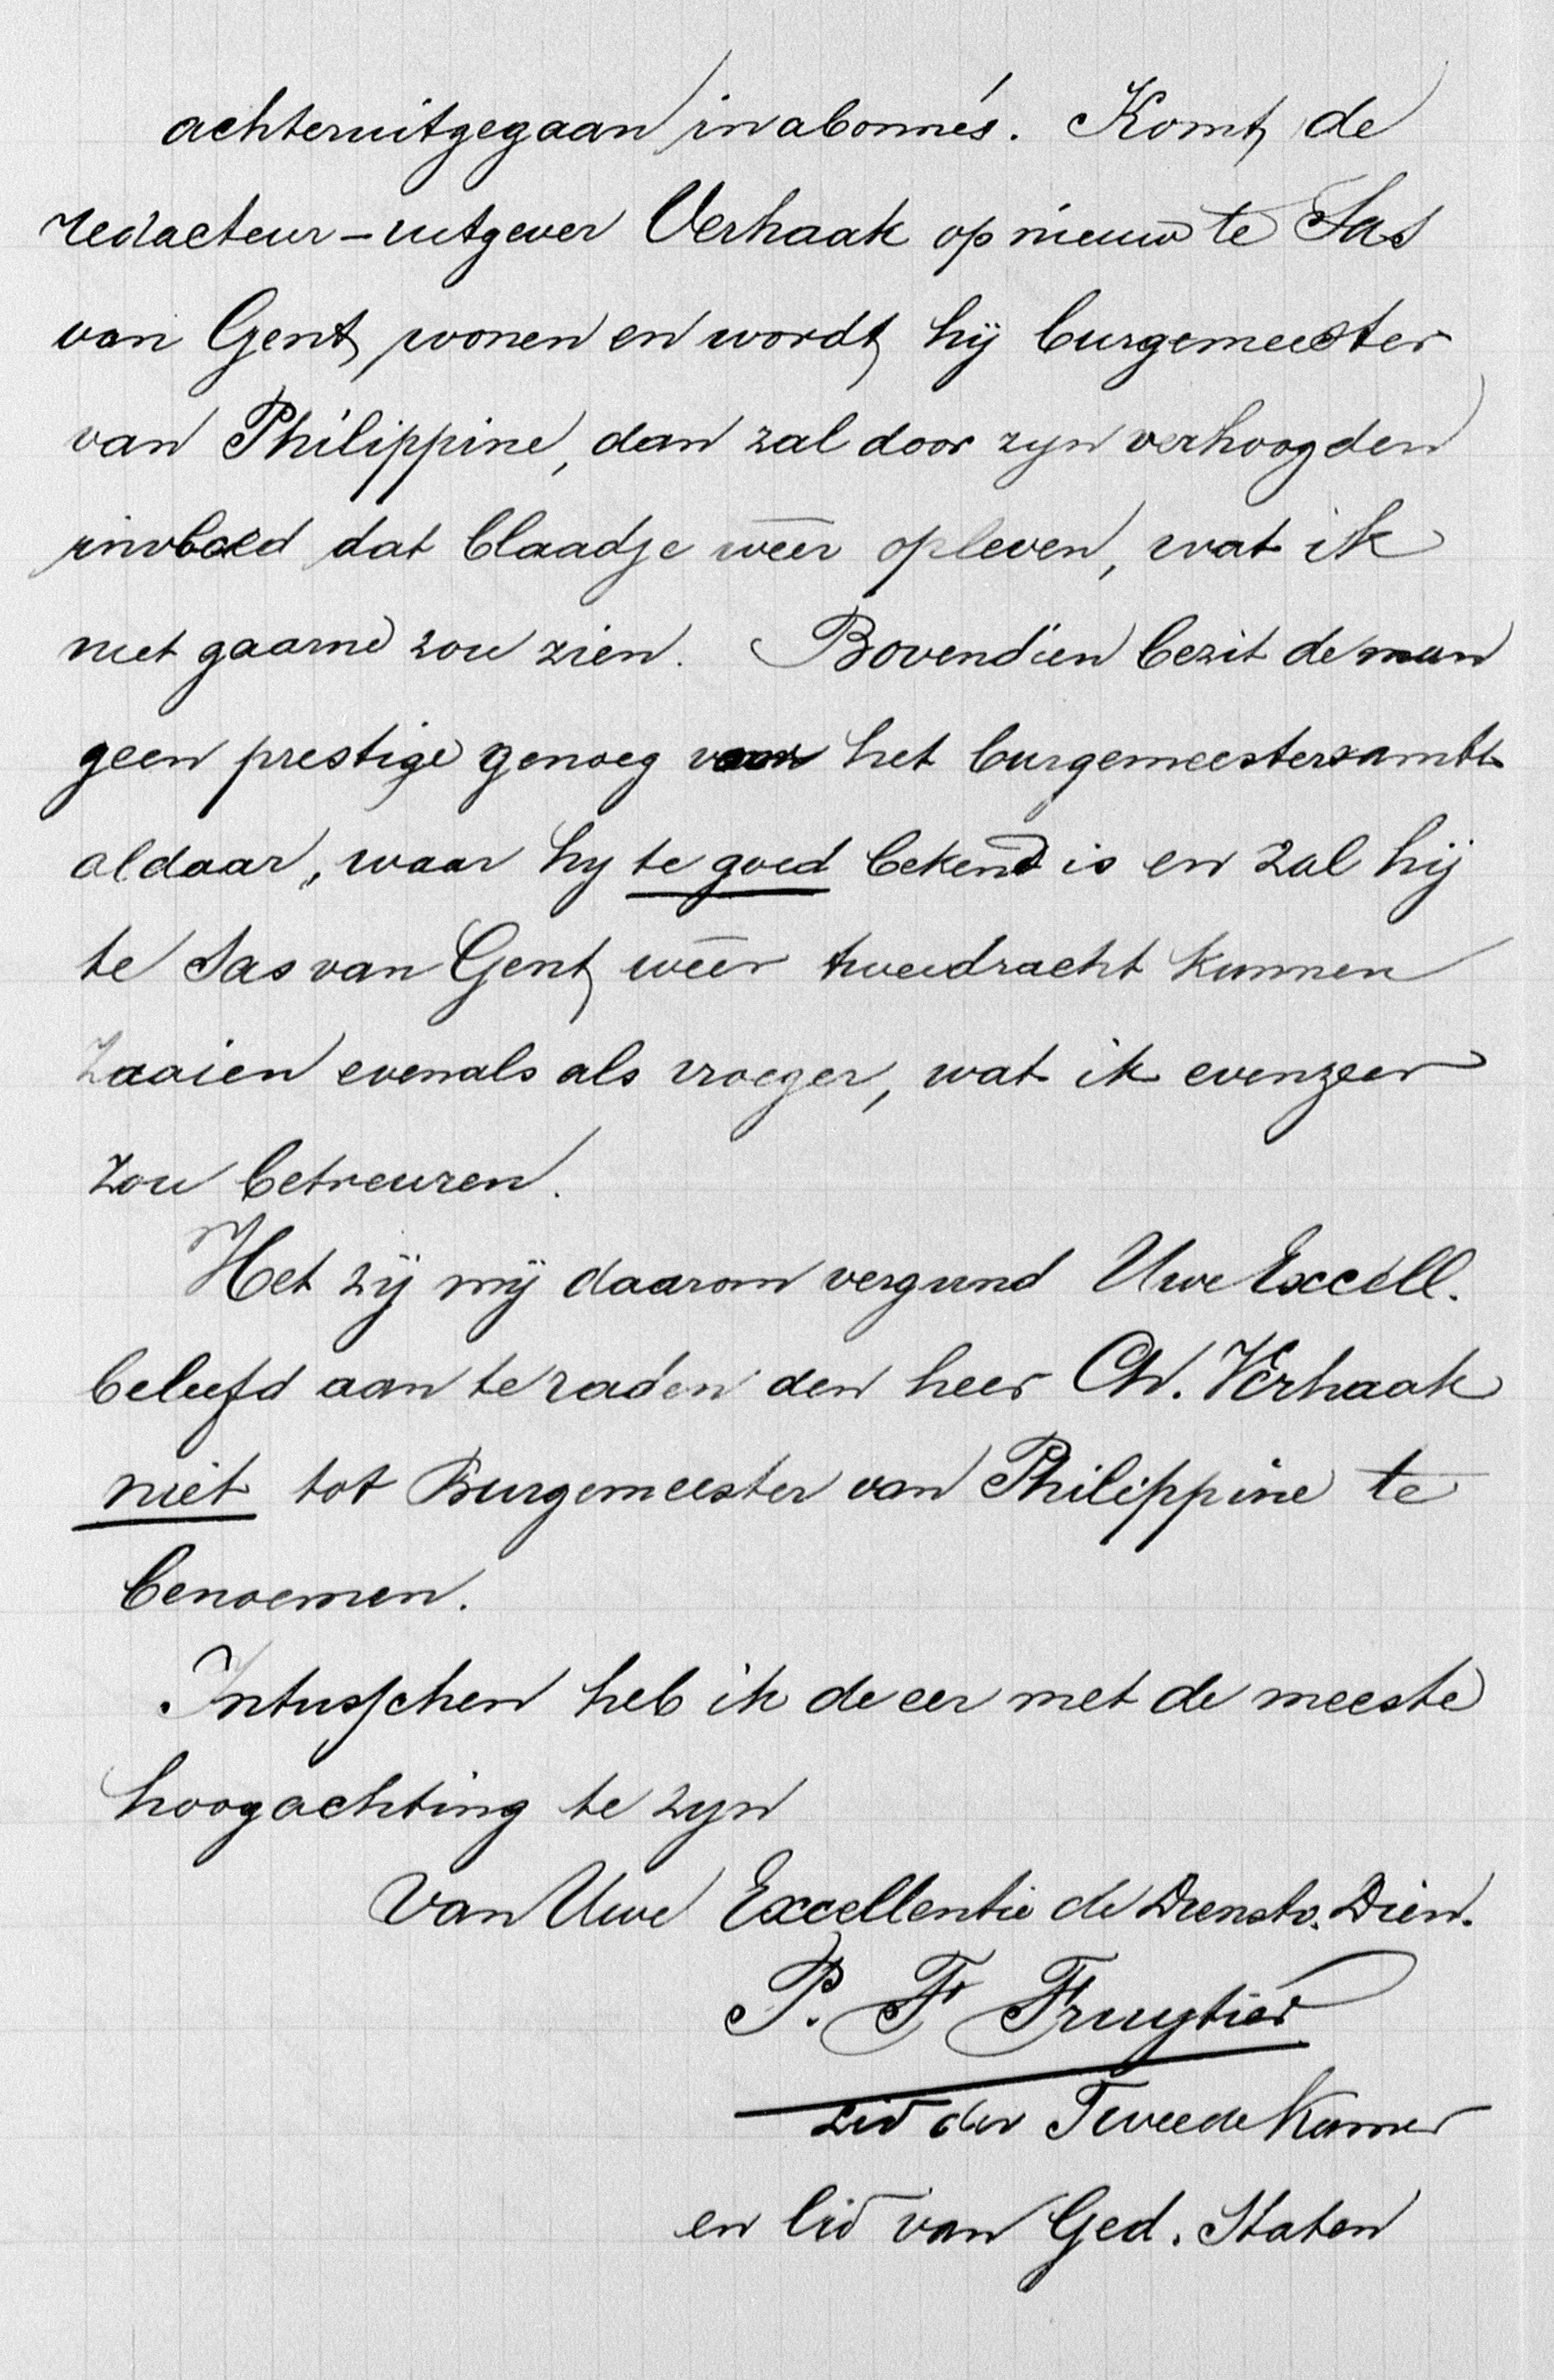 achteruitgegaan in abonnés. Komt de
redacteur-uitgever Verhaak op nieuw te Sas
van Gent wonen en wordt hij burgemeester
van Philippine, dan zal door zyn verhoogden
invloed dat blaadje weer opleven, wat ik
niet gaarne zou zien. Bovendien bezit de man
geen prestige genoeg voor het burgemeestersambt
aldaar, waar hy te goed bekend is en zal hij
te Sas van Gent weer tweedracht kunnen
zaaien evenals als vroeger, wat ik evenzeer
zou betreuren.
Het zij mij daarom vergund Uwe Excell.
beleefd aan te raden den heer Ch. Verhaak
niet tot Burgemeester van Philippine te
benoemen.
Intusschen heb ik de eer met de meeste
hoogachting te zyn
Van Uwe Excellentie de Dienstv. Dien.
P. F Fruytier
Lid der Tweede Kamer
en lid van Ged. Staten